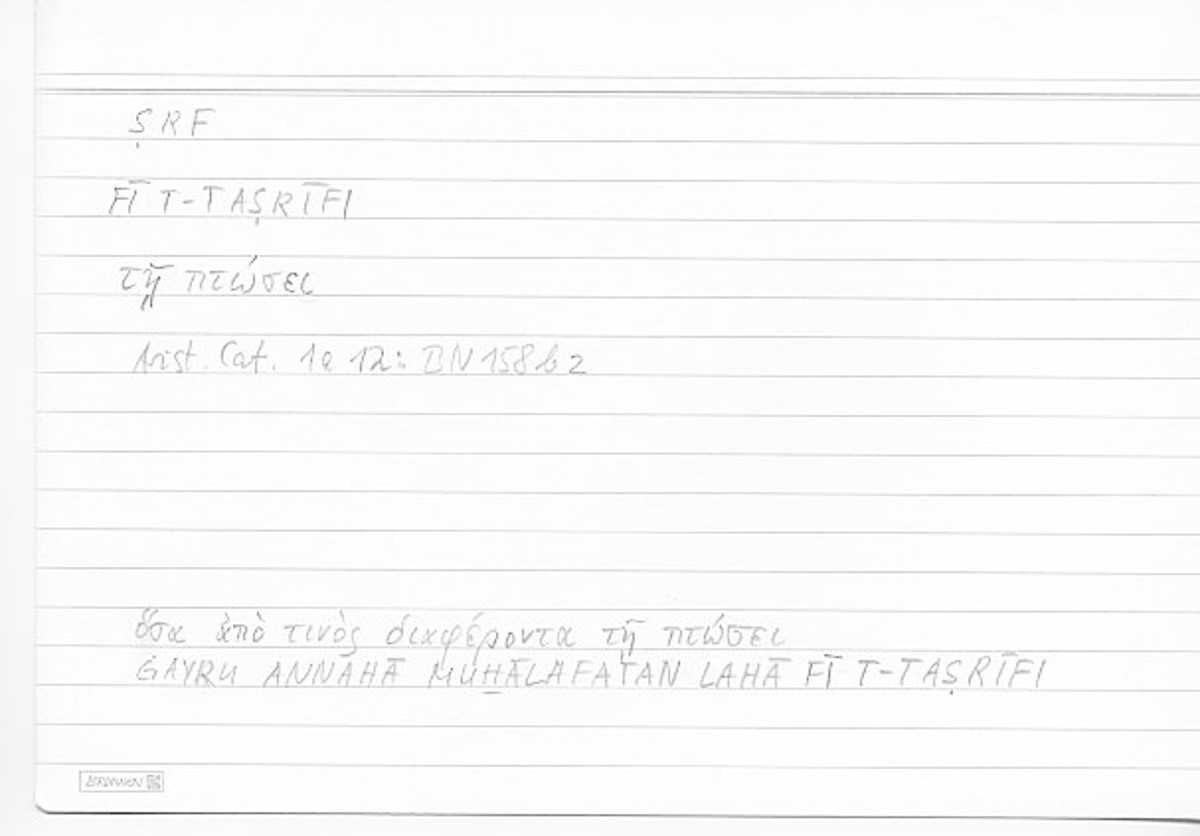 ṢRF
FĪ T-TAṢRĪFI
τῇ πτώσει
Arist. Cat. 1a 12: BN 158b2
ὅσα ἀπό τινὸς διαφέροντα τῇ πτώσει
ĠAYRU ANNAHĀ MUḪĀLAFATAN LAHĀ FĪ T-TAṢRĪFI
BRUNNEN